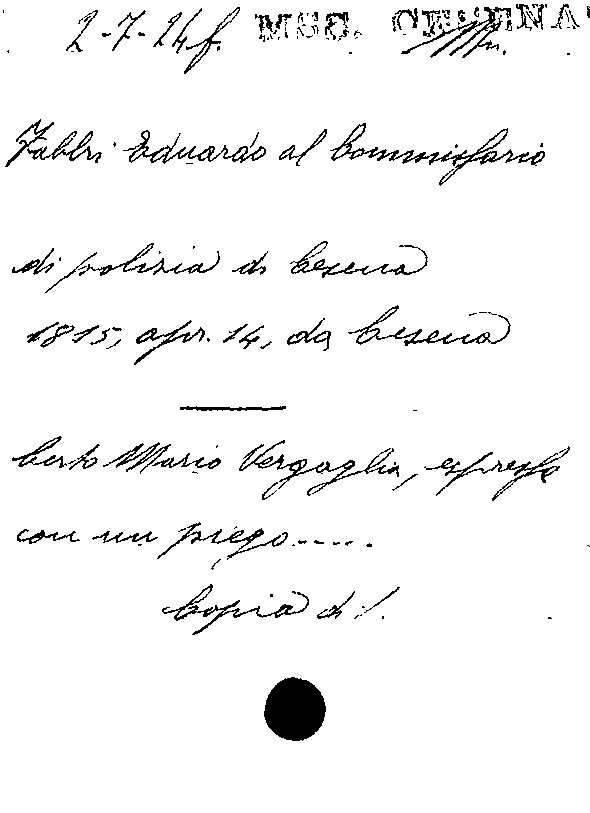 2-7-24 f. MSC. CESENA
Fabbri Eduardo al Commissario
di polizia di Cesena
1815, apr. 14, da Cesena
Certo Mario Vergaglia, espresso
con un piego.....
Copia di l.